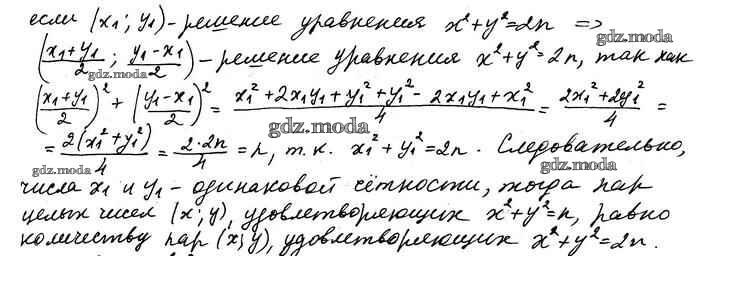 если (x₁; y₁) - решение уравнения x²+y²=2n =>
((x₁+y₁)/2; (y₁-x₁)/2) - решение уравнения x²+y²=2n, так как
((x₁+y₁)/2)² + ((y₁-x₁)/2)² = (x₁²+2x₁y₁+y₁²+y₁²-2x₁y₁+x₁²)/4 = (2x₁²+2y₁²)/4 =
= 2(x₁²+y₁²)/4 = 2·2n/4 = n, т.к. x₁²+y₁²=2n. Следовательно,
числа x₁ и y₁ - одинаковой чётности, тогда пар
целых чисел (x; y), удовлетворяющих x²+y²=n, равно
количеству пар (x; y), удовлетворяющих x²+y²=2n.
gdz.moda
gdz.moda
gdz.moda
gdz.moda
gdz.moda
gdz.moda